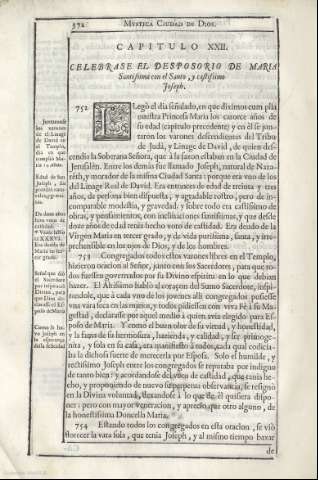 372 MYSTICA CIUDAD DE DIOS.
CAPITULO XXII.
CELEBRASE EL DESPOSORIO DE MARIA
Santissima con el Santo, y castissimo
Joseph.
752 LLegò el dia señalado, en que diximos cum plia
nuestra Princesa Maria los catorce años de
su edad (capitulo precedente) y en èl se jun-
taron los varones descendientes del Tribu
de Judà, y Linage de David, de quien des-
cendia la Soberana Señora, que à la sazon estaban en la Ciudad de
Jerusalèn. Entre los demàs fue llamado Joseph, natural de Naza-
rèth, y morador de la misma Ciudad Santa: porque era vno de los
del Linage Real de David. Era entonces de edad de treinta y tres
años, de persona bien dispuesta, y agradable rostro, pero de in-
comparable modestia, y gravedad, y sobre todo era castissimo de
obras, y pensamientos, con inclinaciones santissimas, y que desde
doze años de edad tenia hecho voto de castidad. Era deudo de la
Virgen Maria en tercer grado, y de vida purissima, santa, y irre-
prehensible en los ojos de Dios, y de los hombres.
753 Congregados todos estos varones libres en el Templo,
hizieron oracion al Señor, junto con los Sacerdotes, para que to-
dos fuessen governados por su Divino espiritu en lo que debian
hazer. El Altissimo hablò al coraçon del Sumo Sacerdote, inspi-
randole, que à cada vno de los jovenes alli congregados pusiesse
vna vara seca en las manos, y todos pidiessen con viva Fè à su Ma-
gestad, declarasse por aquel medio à quien avia elegido para Es-
poso de Maria. Y como el buen olor de su virtud, y honestidad,
y la fama de su hermosura, hazienda, y calidad, y ser primoge-
nita, y sola en su casa, era manifiesto à todos, cada qual codicia-
ba la dichosa suerte de merecerla por Esposa. Solo el humilde, y
rectissimo Joseph entre los congregados se reputaba por indigno
de tanto bien; y acordandose del voto de castidad, que tenia he-
cho, y proponiendo de nuevo su perpetua observancia, se resignò
en la Divina voluntad, dexandose à lo que de èl quisiera dispo-
ner: pero con mayor veneracion, y aprecio que otro alguno, de
la honestissima Doncella Maria.
754 Estando todos los congregados en esta oracion, se viò
florecer la vara sola, que tenia Joseph, y al mismo tiempo baxar
de
Juntanse
los varones
de el Linage
de David en
el Templo,
dia en que
cumplia Ma-
ria 14. años.
Edad de San
Joseph, su